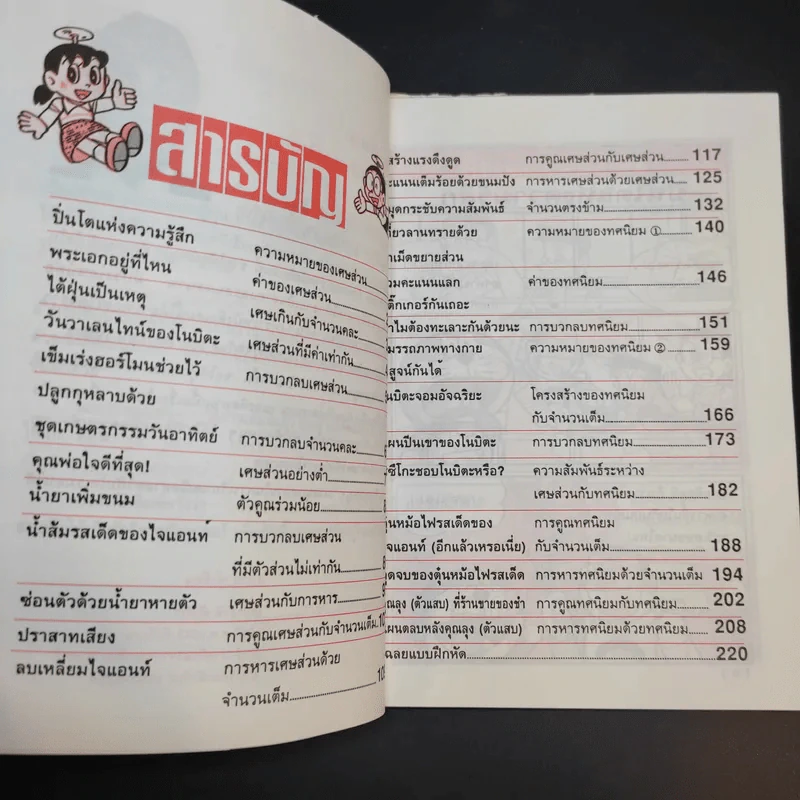 สารบัญ
ปิ่นโตแห่งความรู้สึก ความหมายของเศษส่วน
พระเอกอยู่ที่ไหน ค่าของเศษส่วน
ไต้ฝุ่นเป็นเหตุ เศษเกินกับจำนวนคละ
วันวาเลนไทน์ของโนบิตะ เศษส่วนที่มีค่าเท่ากัน
เข็มเร่งฮอร์โมนช่วยไว้ การบวกลบเศษส่วน
ปลูกกุหลาบด้วย
ชุดเกษตรกรรมวันอาทิตย์ การบวกลบจำนวนคละ
คุณพ่อใจดีที่สุด! เศษส่วนอย่างต่ำ
น้ำยาเพิ่มขนม ตัวคูณร่วมน้อย
น้ำส้มรสเด็ดของไจแอนท์ การบวกลบเศษส่วน
ที่มีตัวส่วนไม่เท่ากัน
ซ่อนตัวด้วยน้ำยาหายตัว เศษส่วนกับการหาร
ปราสาทเสียง การคูณเศษส่วนกับจำนวนเต็ม
ลบเหลี่ยมไจแอนท์ การหารเศษส่วนด้วย
จำนวนเต็ม
สร้างแรงดึงดูด การคูณเศษส่วนกับเศษส่วน 117
ะแนนเต็มร้อยด้วยขนมปัง การหารเศษส่วนด้วยเศษส่วน 125
มุดกระชับความสัมพันธ์ จำนวนตรงข้าม 132
ยวลานทรายด้วย ความหมายของทศนิยม ① 140
เม็ดขยายส่วน
วมคะแนนแลก ค่าของทศนิยม 146
ติ๊กเกอร์กันเถอะ
ำไมต้องทะเลาะกันด้วยนะ การบวกลบทศนิยม 151
มรรถภาพทางกาย ความหมายของทศนิยม ② 159
สูจน์กันได้
นบิตะจอมอัจฉริยะ โครงสร้างของทศนิยม
กับจำนวนเต็ม 166
ผนปีนเขาของโนบิตะ การบวกลบทศนิยม 173
ซึโกะชอบโนบิตะหรือ? ความสัมพันธ์ระหว่าง
เศษส่วนกับทศนิยม 182
ุ๋นหม้อไฟรสเด็ดของ การคูณทศนิยม
จแอนท์ (อีกแล้วเหรอเนี่ย) กับจำนวนเต็ม 188
ุดจบของตุ๋นหม้อไฟรสเด็ด การหารทศนิยมด้วยจำนวนเต็ม 194
ุณลุง (ตัวแสบ) ที่ร้านขายของชำ การคูณทศนิยมกับทศนิยม 202
ผนตลบหลังคุณลุง (ตัวแสบ) การหารทศนิยมด้วยทศนิยม 208
ฉลยแบบฝึกหัด 220